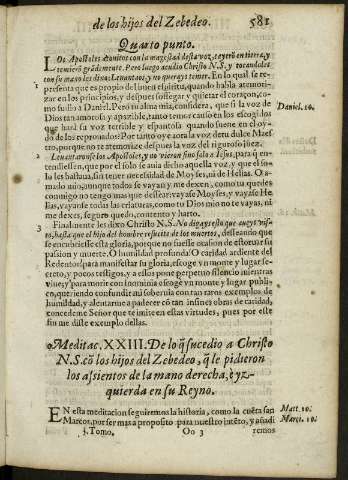 de los hijos del Zebedeo. 581
Quarto punto.
LOs Apostoles atonitos con la magestad desta voz, cayerõ en tierra, y
temierõ grãdemente. Pero luego acudio Christo N.S. y tocandoles
con su mano les dixo: Leuantaos, y no querays temer. En lo qual se re-
presenta que es propio del buen espiritu, quando habla atemori-
zar en los principios, y despues sossegar y quietar el coraçon, co-
mo sucedio a Daniel. Pero tu alma mia, considera, que si la voz de Daniel. 10.
Dios tan amorosa y apazible, tanto temor causo en los escogidos
que hará su voz terrible y espantosa quando suene en el oy-
do de los reprouados: Por tanto oye aora la voz deste dulce Maes-
tro, porque no te atemorize despues la voz del riguroso juez.
2 Leuantaronse los Apostoles, y no vieron sino solo a Iesus, para q̃ en-
tendiessen, que por el solo se auia dicho aquella voz, y que el so-
lo les bastaua, sin tener necessidad de Moyses, ni de Helias. O a-
mado mio, aunque todos se vayan y me dexen, como tu quedes
conmigo no tengo mas que dessear: vayase Moyses, y vayase He-
lias, vayanse todas las criaturas, como tu Dios mio no te vayas, ni
me dexes, seguro quedo, contento y harto.
3 Finalmente les dixo Christo N.S. No digays esto que aueys vis-
to, hasta que el hijo del hombre resucite de los muertos, desseando que
se encubriesse esta gloria, porque no fuesse ocasion de estoruar su
passion y muerte. O humildad profunda! O caridad ardiente del
Redentor! para manifestar su gloria, escoge vn monte y lugar se-
creto, y pocos testigos, y a ellos pone perpetuo silencio mientras
viue, y para morir con ignominia escoge vn monte y lugar publi-
co, queriendo confundir mi soberuia con tan raros exemplos de
humildad, y alentarme a padecer cõ tan insines obras de caridad,
concedeme Señor que te imite en estas virtudes, pues por esse
fin me diste exemplo dellas.
Meditac. XXIII. De lo q̃ sucedio a Christo
N.S. cõ los hijos del Zebedeo, q̃ le pidieron
los assientos de la mano derecha, è yz-
quierda en su Reyno.
EN esta meditacion seguiremos la historia, como la cuẽta san Matt. 20.
Marcos, por ser mas a proposito para nuestro intẽto, y añadi Marc. 10.
1. Tomo. Oo 3 remos